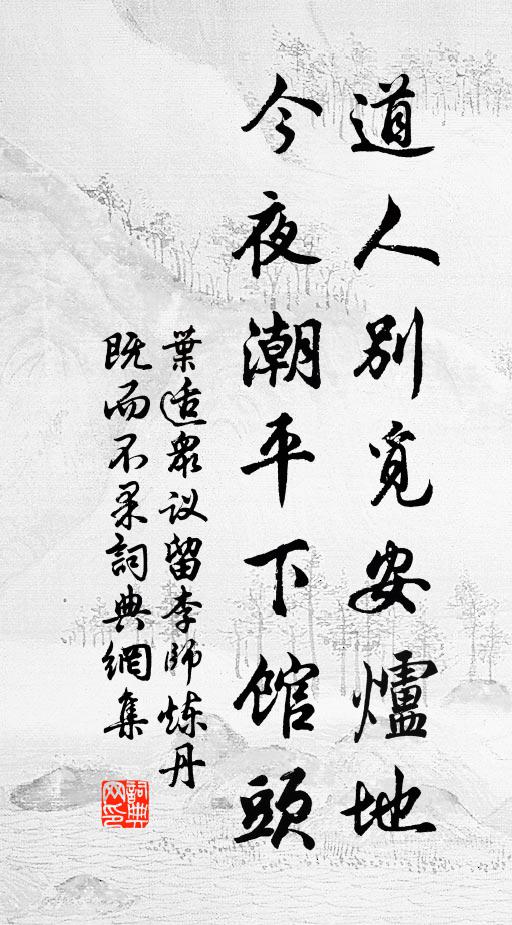 道人别覓安爐地
今夜潮平下館頭
葉适眾议留李師炼丹
既而不果詞典網集
詞典网印